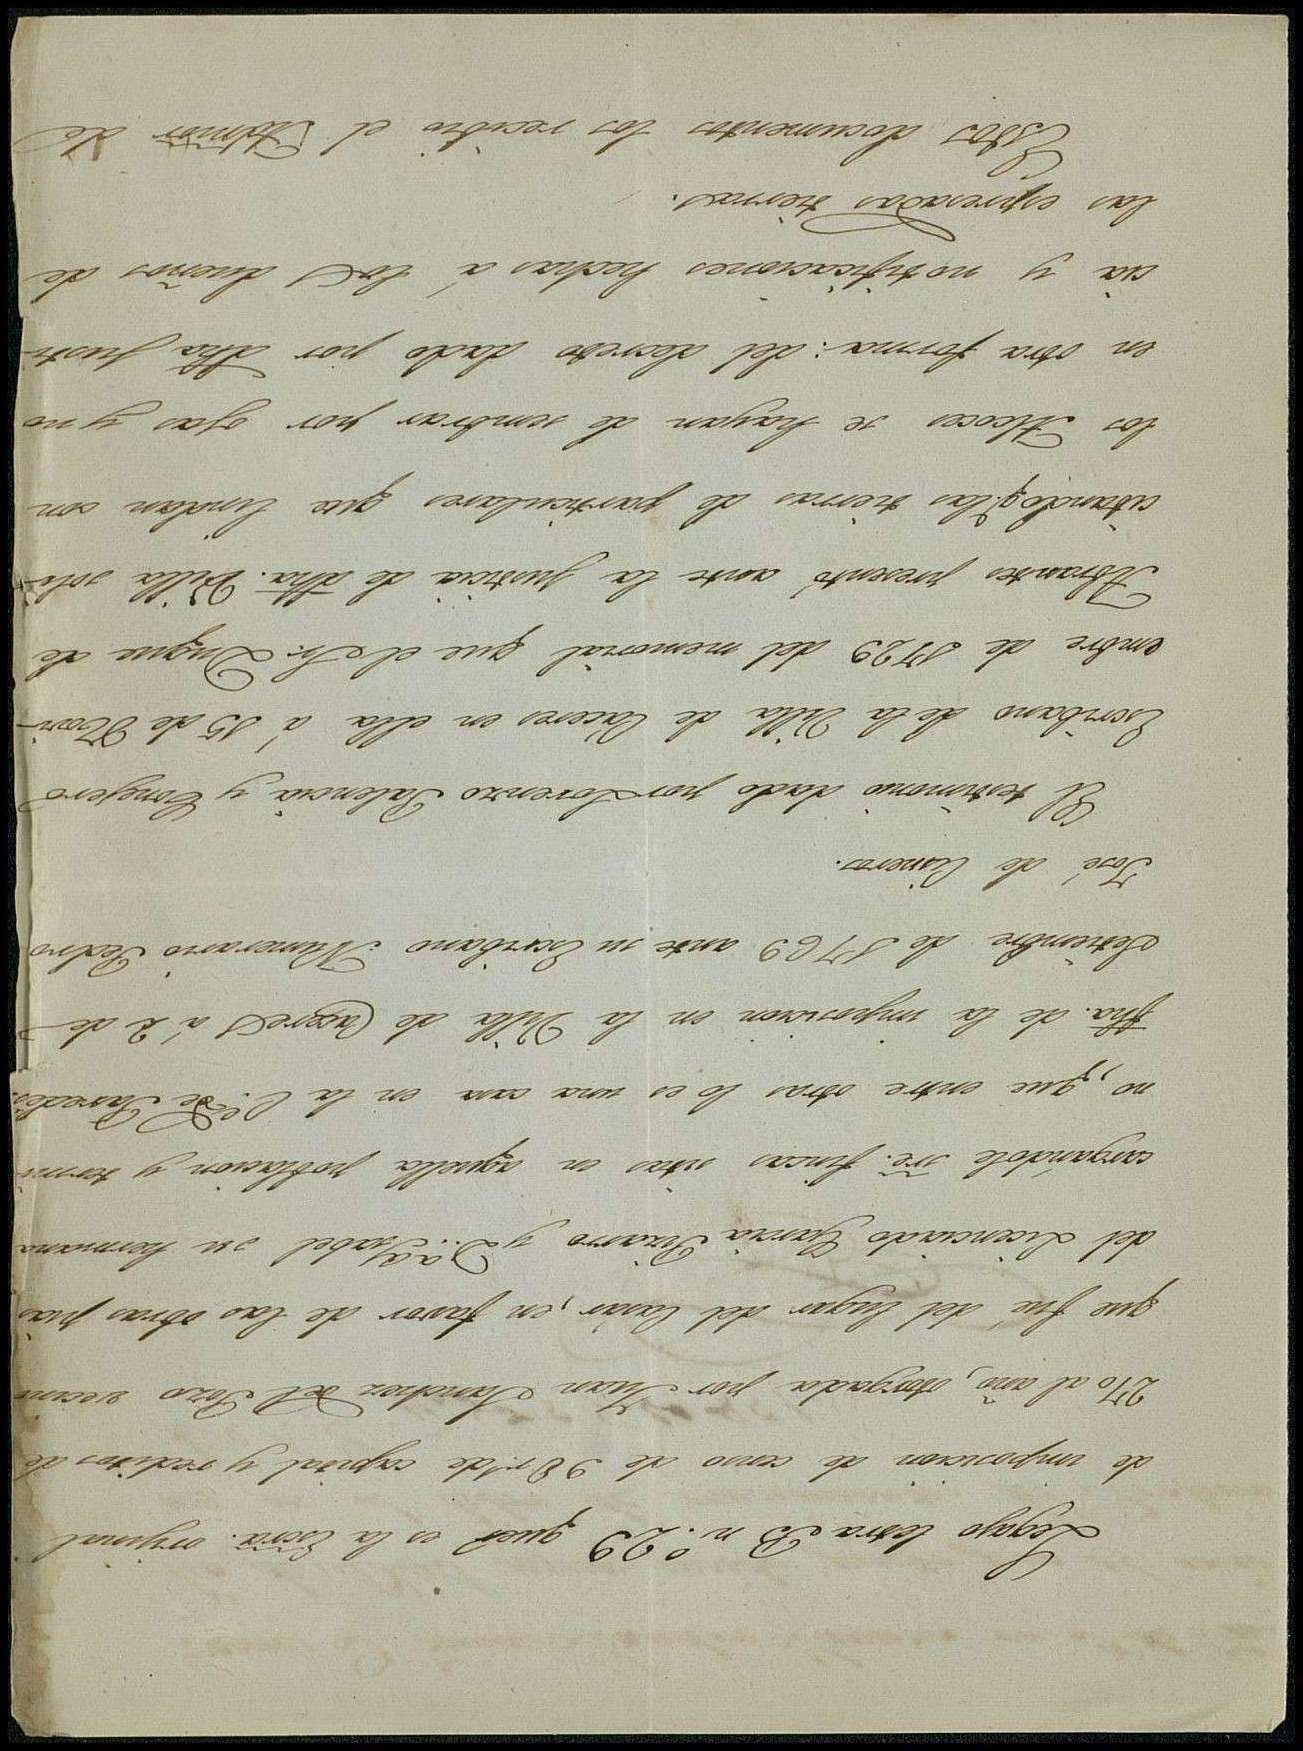 Legajo letra B n.º 29 que es la Escra. orijinal
de imposicion de censo de 98 rs. de capital y reditos de
2 % al año, otorgada por Juan Sanchez del Pozo vecino
que fué del lugar del Casar, en favor de las obras pias
del Licenciado Garcia Pizarro y D.ª Isabel su hermana
cargandole sre. fincas sitas en aquella poblacion y termi-
no, que entre otras lo es una casa en la C.e de Paredes:
fha. de la imposicion en la Villa de Caceres á 2 de
Setiembre de 1769 ante su Escribano Numerario Pedro
José de Cisneros.
El testimonio dado por Lorenzo Valencia y Congero
Escribano de la Villa de Caceres en ella á 15 de Novi-
embre de 1729 del memorial que el Sr. Duque de
Abrantes presentó ante la justicia de dha. Villa soli-
citando q.e las tierras de particulares que lindan con
los Arcos se hayan de sembrar por ojas y no
en otra forma: del decreto dado por dha Justi-
cia y notificaciones hechas á los dueños de
las espresadas tierras.
Estos documentos los recibio el Admor de